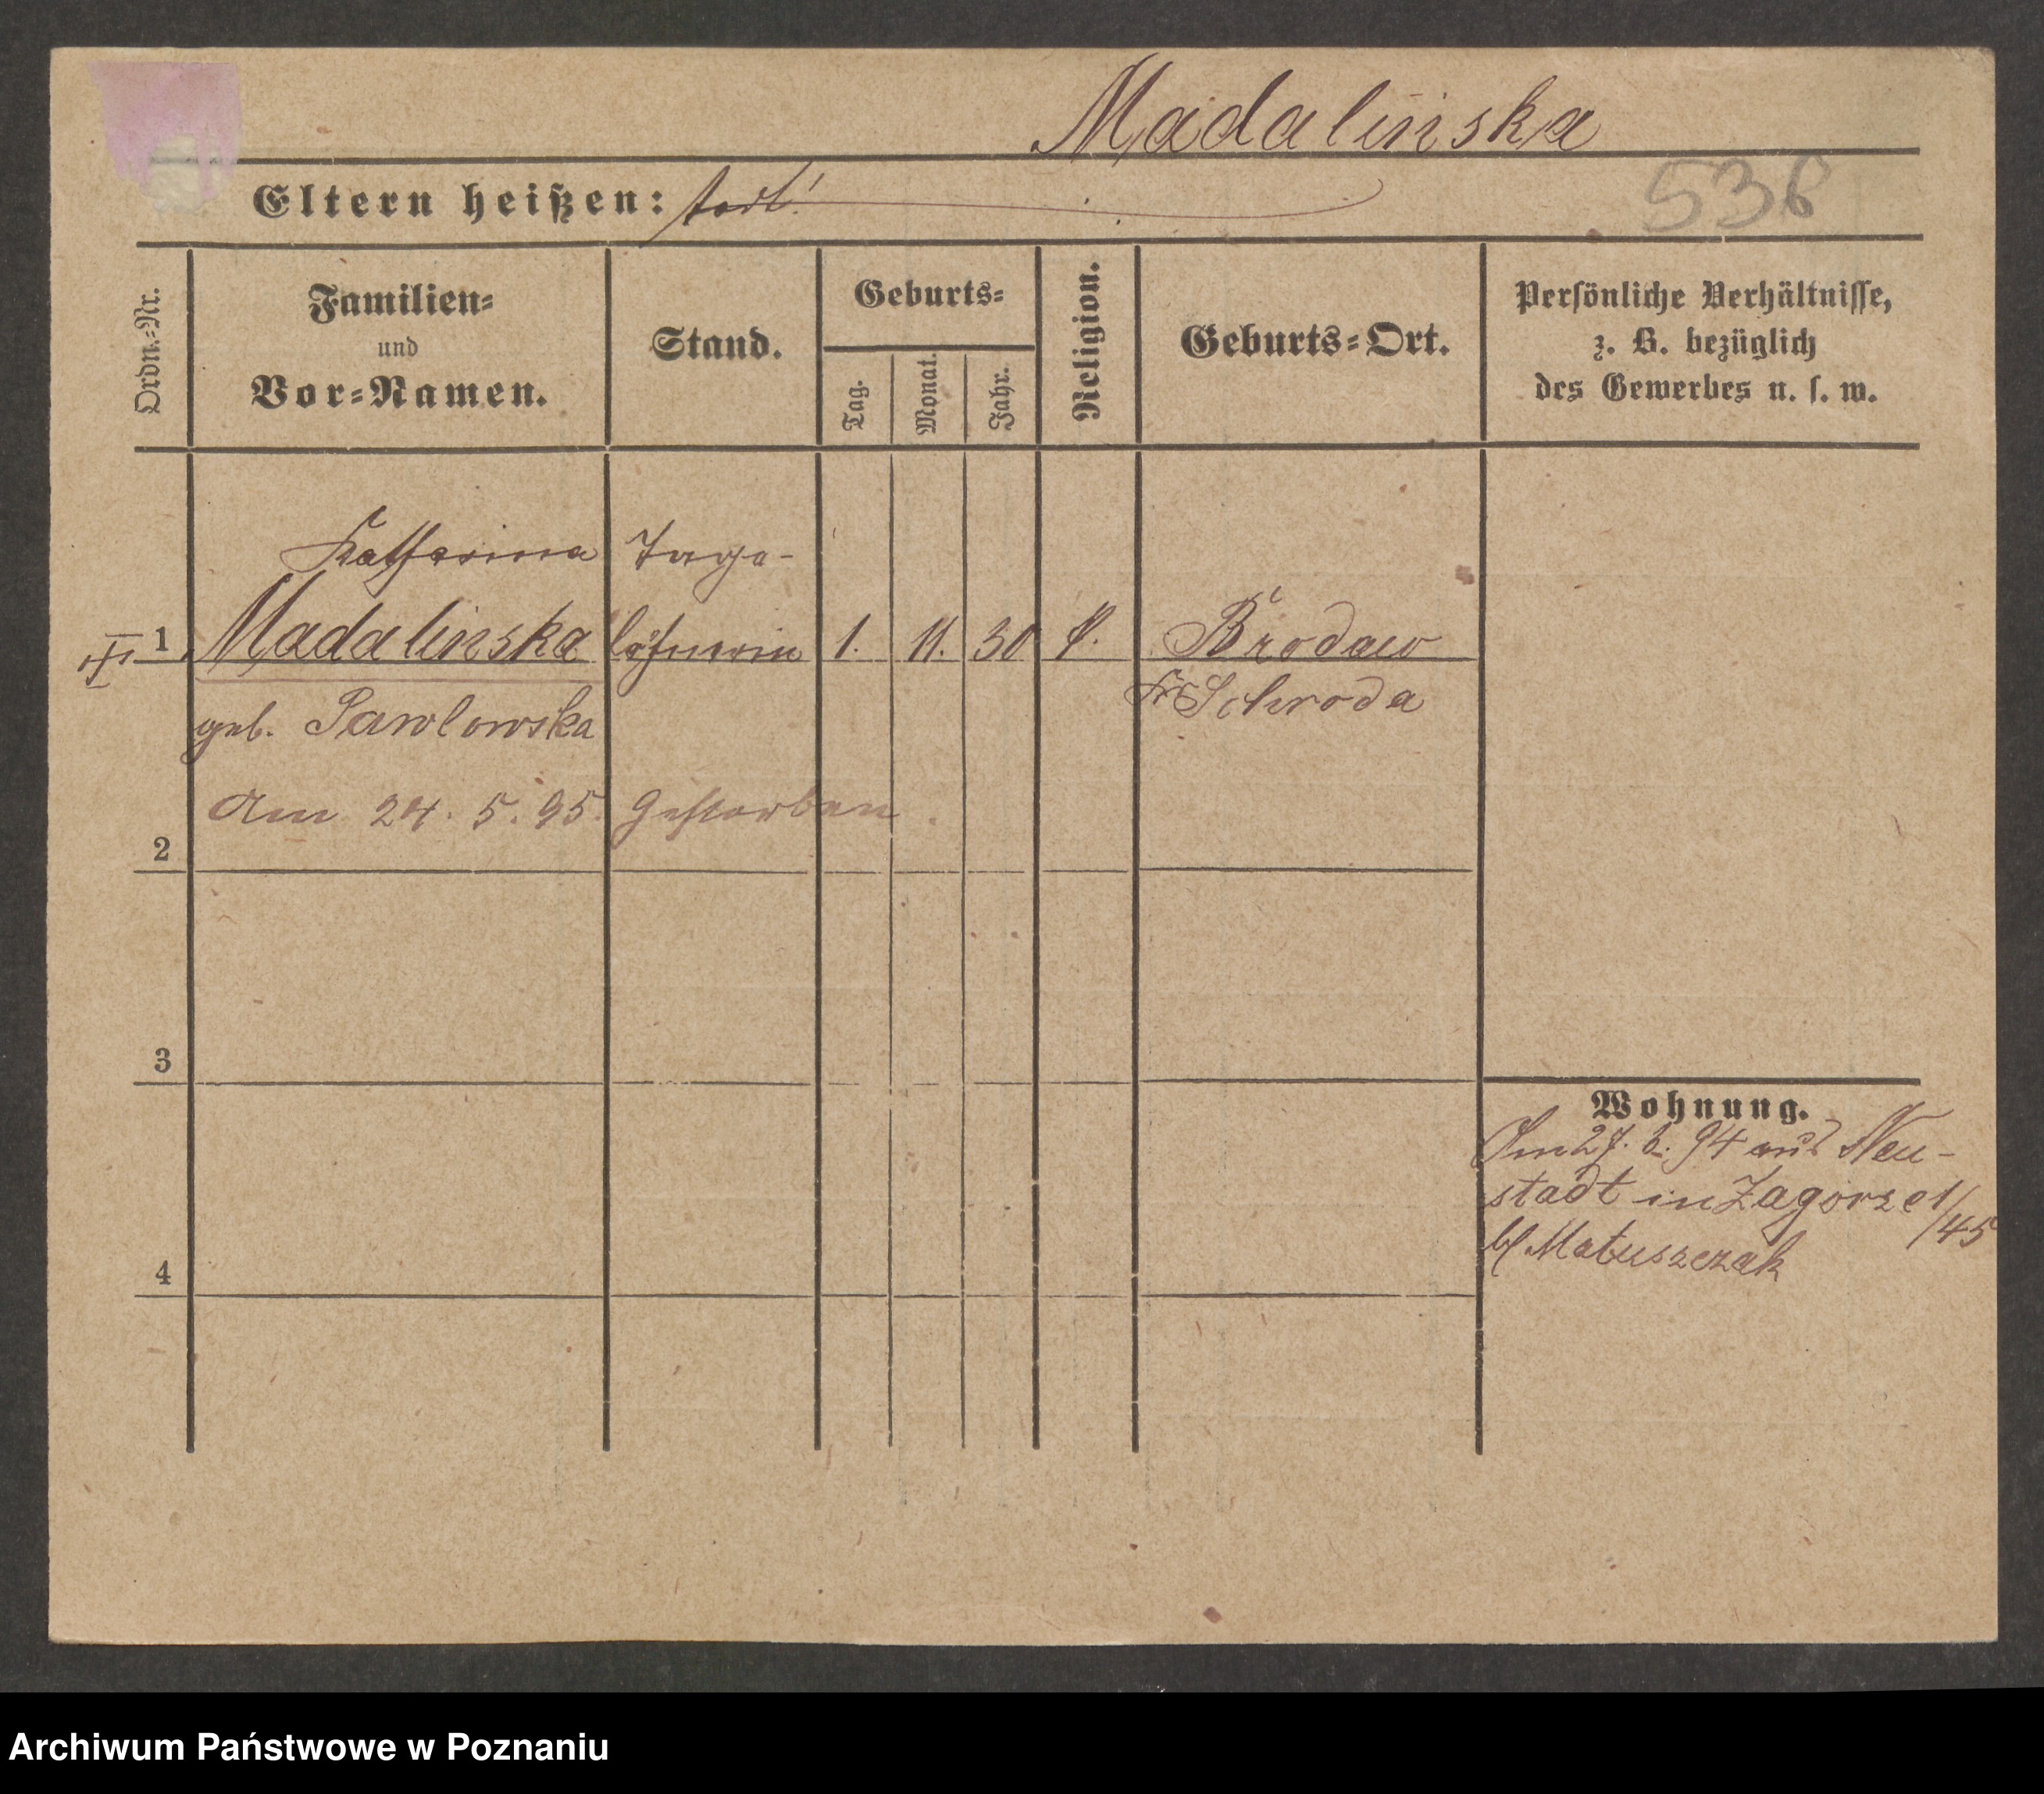 Madalinska
Eltern heißen: todt!
536
Ordn.=Nr.
Familien=
und
Vor=Namen.
Stand.
Geburts=
Tag.
Monat.
Jahr.
Religion.
Geburts=Ort.
Persönliche Verhältnisse,
z. B. bezüglich
des Gewerbes u. s. w.
Katharina Tage-
1 Madalinska löhnerin 1. 11. 30 k. Brodowo
Kr Schroda
geb. Pawlowska
Am 24. 5. 95. Gestorben.
2
3
4
Wohnung.
94 aus Neu-
stadt in Zagorze 1/45
b/ Matuszczak
Archiwum Państwowe w Poznaniu